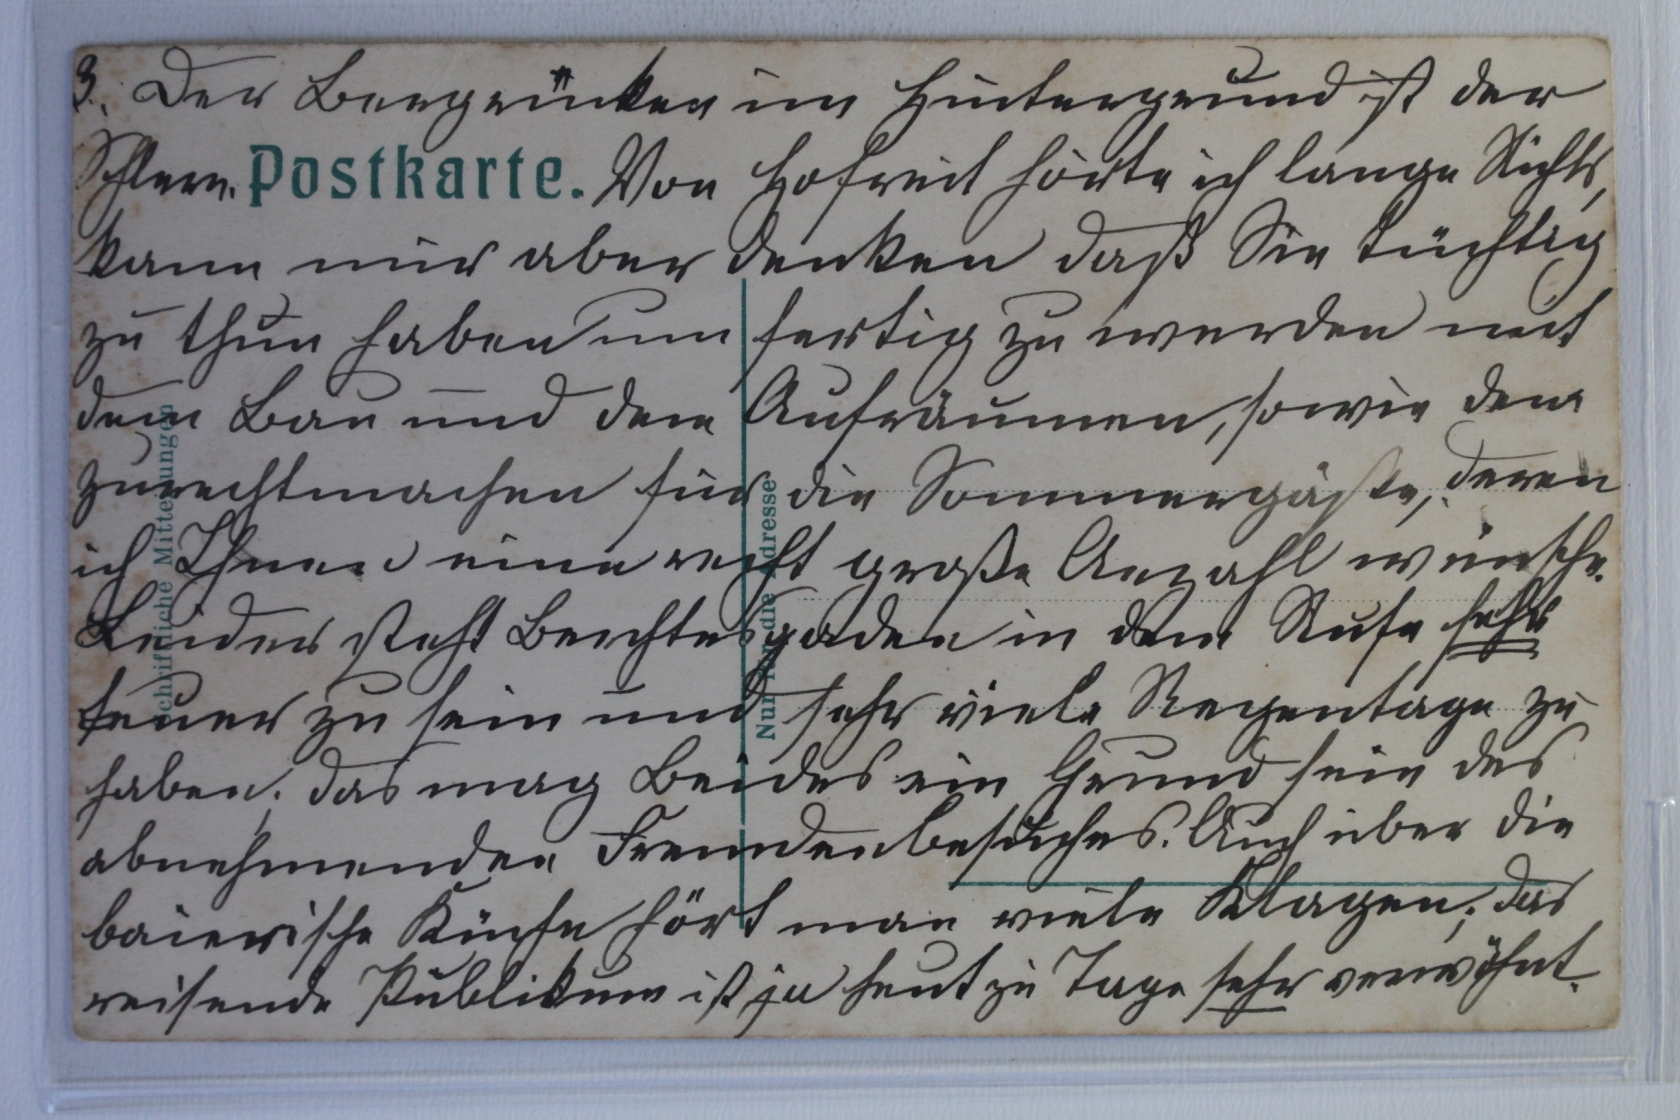 3. Der Bergrücken im Hintergrund ist der
Schlern. Postkarte. Von Hofreit hörte ich lange Nichts,
kann mir aber denken daß Sie tüchtig
zu thun haben um fertig zu werden mit
dem Bau und dem Aufräumen, sowie dem
zurechtmachen für die Sommergäste, deren
ich Ihnen eine recht große Anzahl wünsche.
Leider steht Berchtesgaden in dem Rufe sehr
teuer zu sein und sehr viele Regentage zu
haben; das mag Beides ein Grund sein des
abnehmenden Fremdenbesuches. Auch über die
baierische Küche hört man viele Klagen; das
reisende Publikum ist ja heut zu Tage sehr verwöhnt.
Schriftliche Mitteilungen
Nur für die Adresse